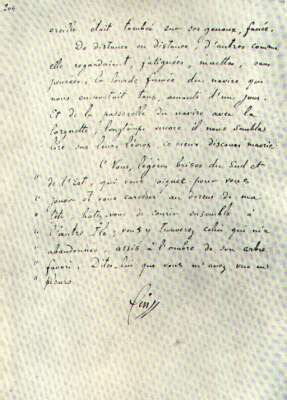 204
oreille était tombée sur ses genoux, fanée.
De distance en distance, d'autres comme
elle regardaient, fatiguées, muettes, sans
pensées, la lourde fumée du navire qui
nous emportait tous, amants d'un jour.
Et de la passerelle du navire avec la
lorgnette, longtemps encore il nous sembla
lire sur leurs lèvres, ce vieux discours maorie
« Vous, légères brises du Sud et
" de l'Est, qui vous joignez pour vous
" jouer et vous caresser au dessus de ma
" tête, hâtez vous de courir ensemble à
" l'autre île; vous y trouverez celui qui m'a
" abandonnée, assis à l'ombre de son arbre
" favori. Dites-lui que vous m'avez vue en
" pleurs.
Fin